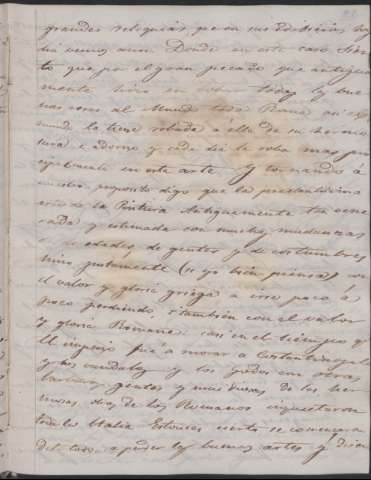 grandes reliquias, que en sus Edificios hoy
dia vemos aun. Donde en este caso siento
to que por el gran pecado que antigua
mente hizo en robar todas las bue
nas cosas al Mundo toda Roma, asi el
mundo la tiene robada á ella de su hermo
sura é adorno y cada dia le roba mas prin
cipalmente en esta arte. Y tornando á
nuestro proposito digo que la prestantissima
arte de la Pintura Antiguamente tan vene
rada y estimada con muchas mudanzas
de edades, de gentes y de costumbres
vino justamente (si yo bien pienso) con
el valor y gloria griega á irse poco á
poco perdiendo, i tambien con el valor
y gloria Romana. casi en el tiempo q
el imperio fué á morar a Costantinopla
y los vandalos y los godos con otras
barbaras gentes y muy diversas de las her
mosas obras de los Romanos inquietaron
toda la Italia. Estonces cierto se comenzara
del todo a perder las buenas artes y